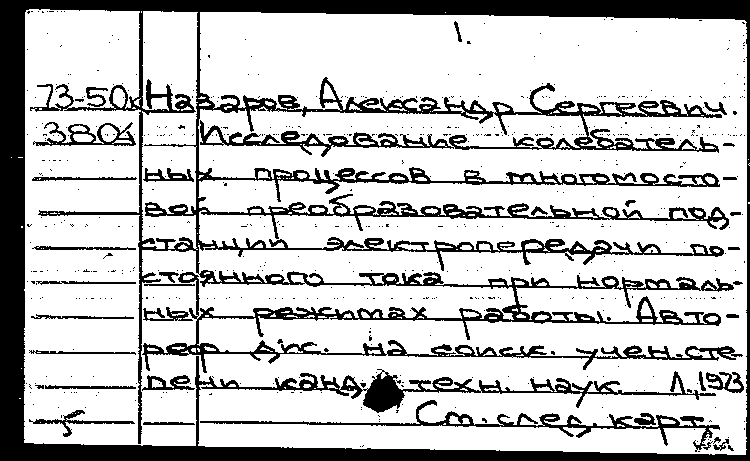 1.
73-50к Назаров, Александр Сергеевич.
3804 Исследование колебатель-
ных процессов в многомосто-
вой преобразовательной под-
станции электропередачи по-
стоянного тока при нормаль-
ных режимах работы. Авто-
реф. дис. на соиск. учен. сте
пени канд. техн. наук. Л., 1973
5 См. след. карт.